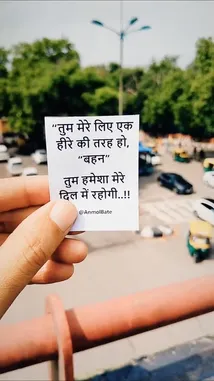 “तुम मेरे लिए एक
हीरे की तरह हो,
“बहन”
तुम हमेशा मेरे
दिल में रहोगी..!!
@AnmolBate